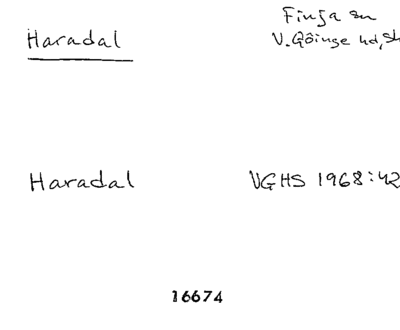 Finja sn
Haradal V. Göinge hd, Sk
Haradal VGHS 1968:42
16674